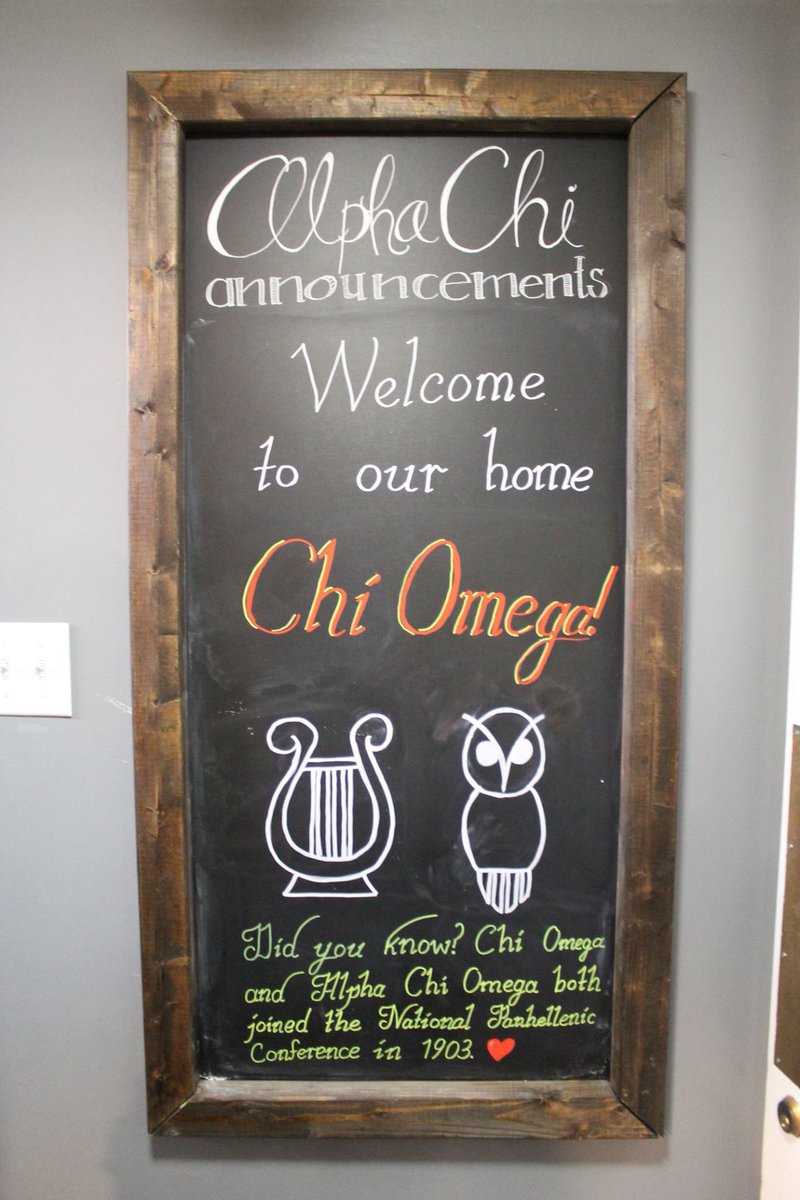 Alpha Chi
announcements
Welcome
to our home
Chi Omega!
Did you know? Chi Omega
and Alpha Chi Omega both
joined the National Panhellenic
Conference in 1903.